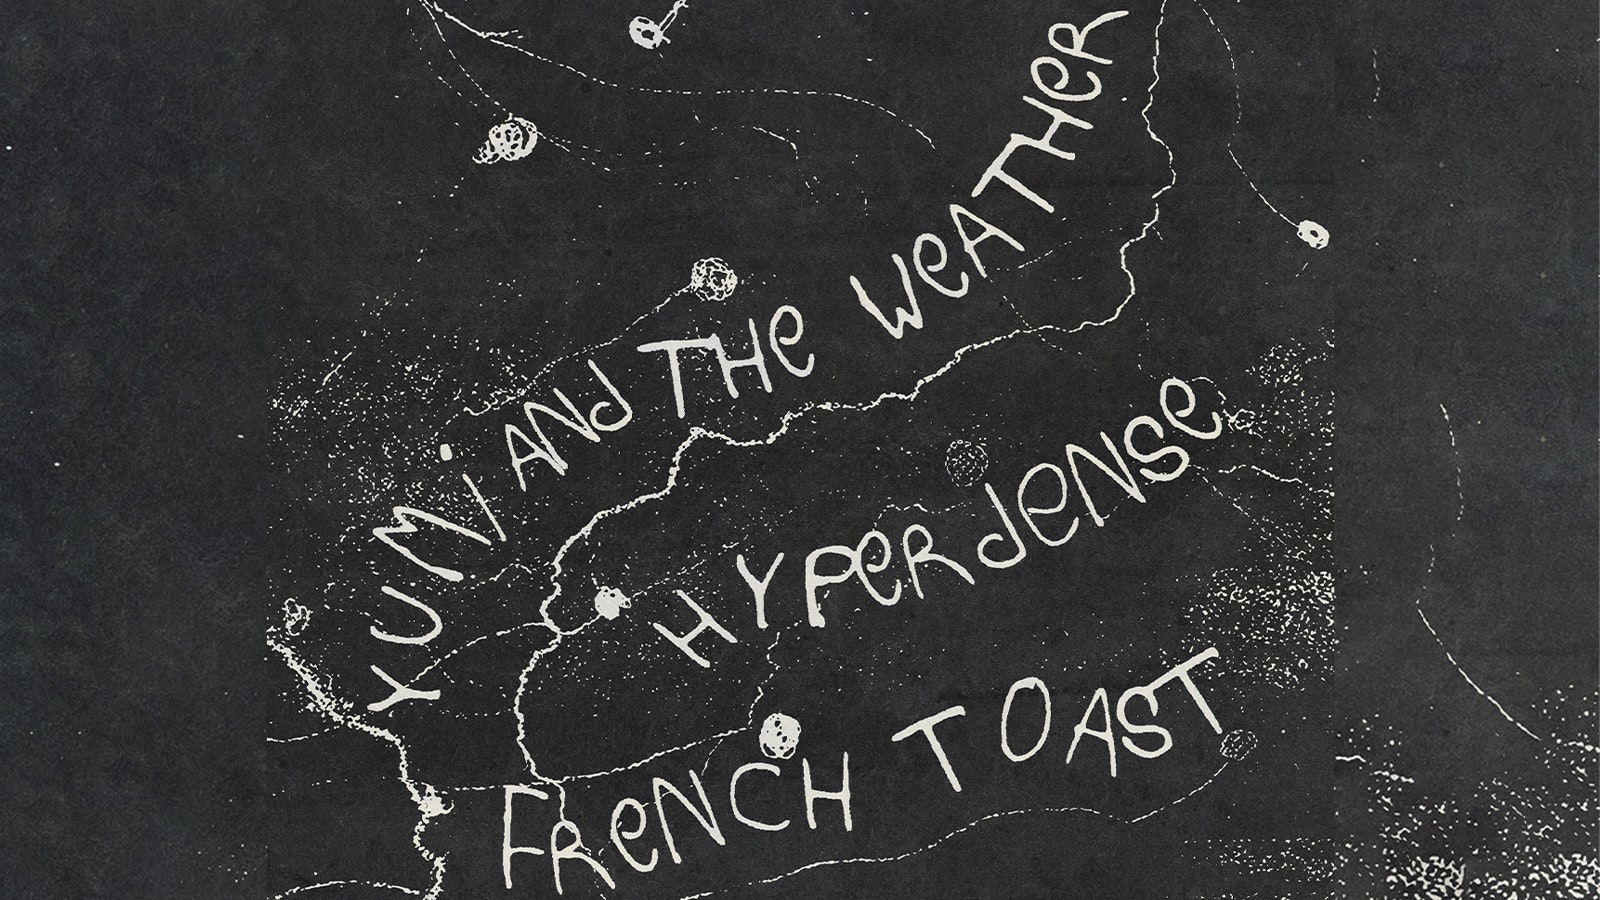 YUMi AND THe WeATHeR
HYPeRdeNSe
FReNCH TOAST